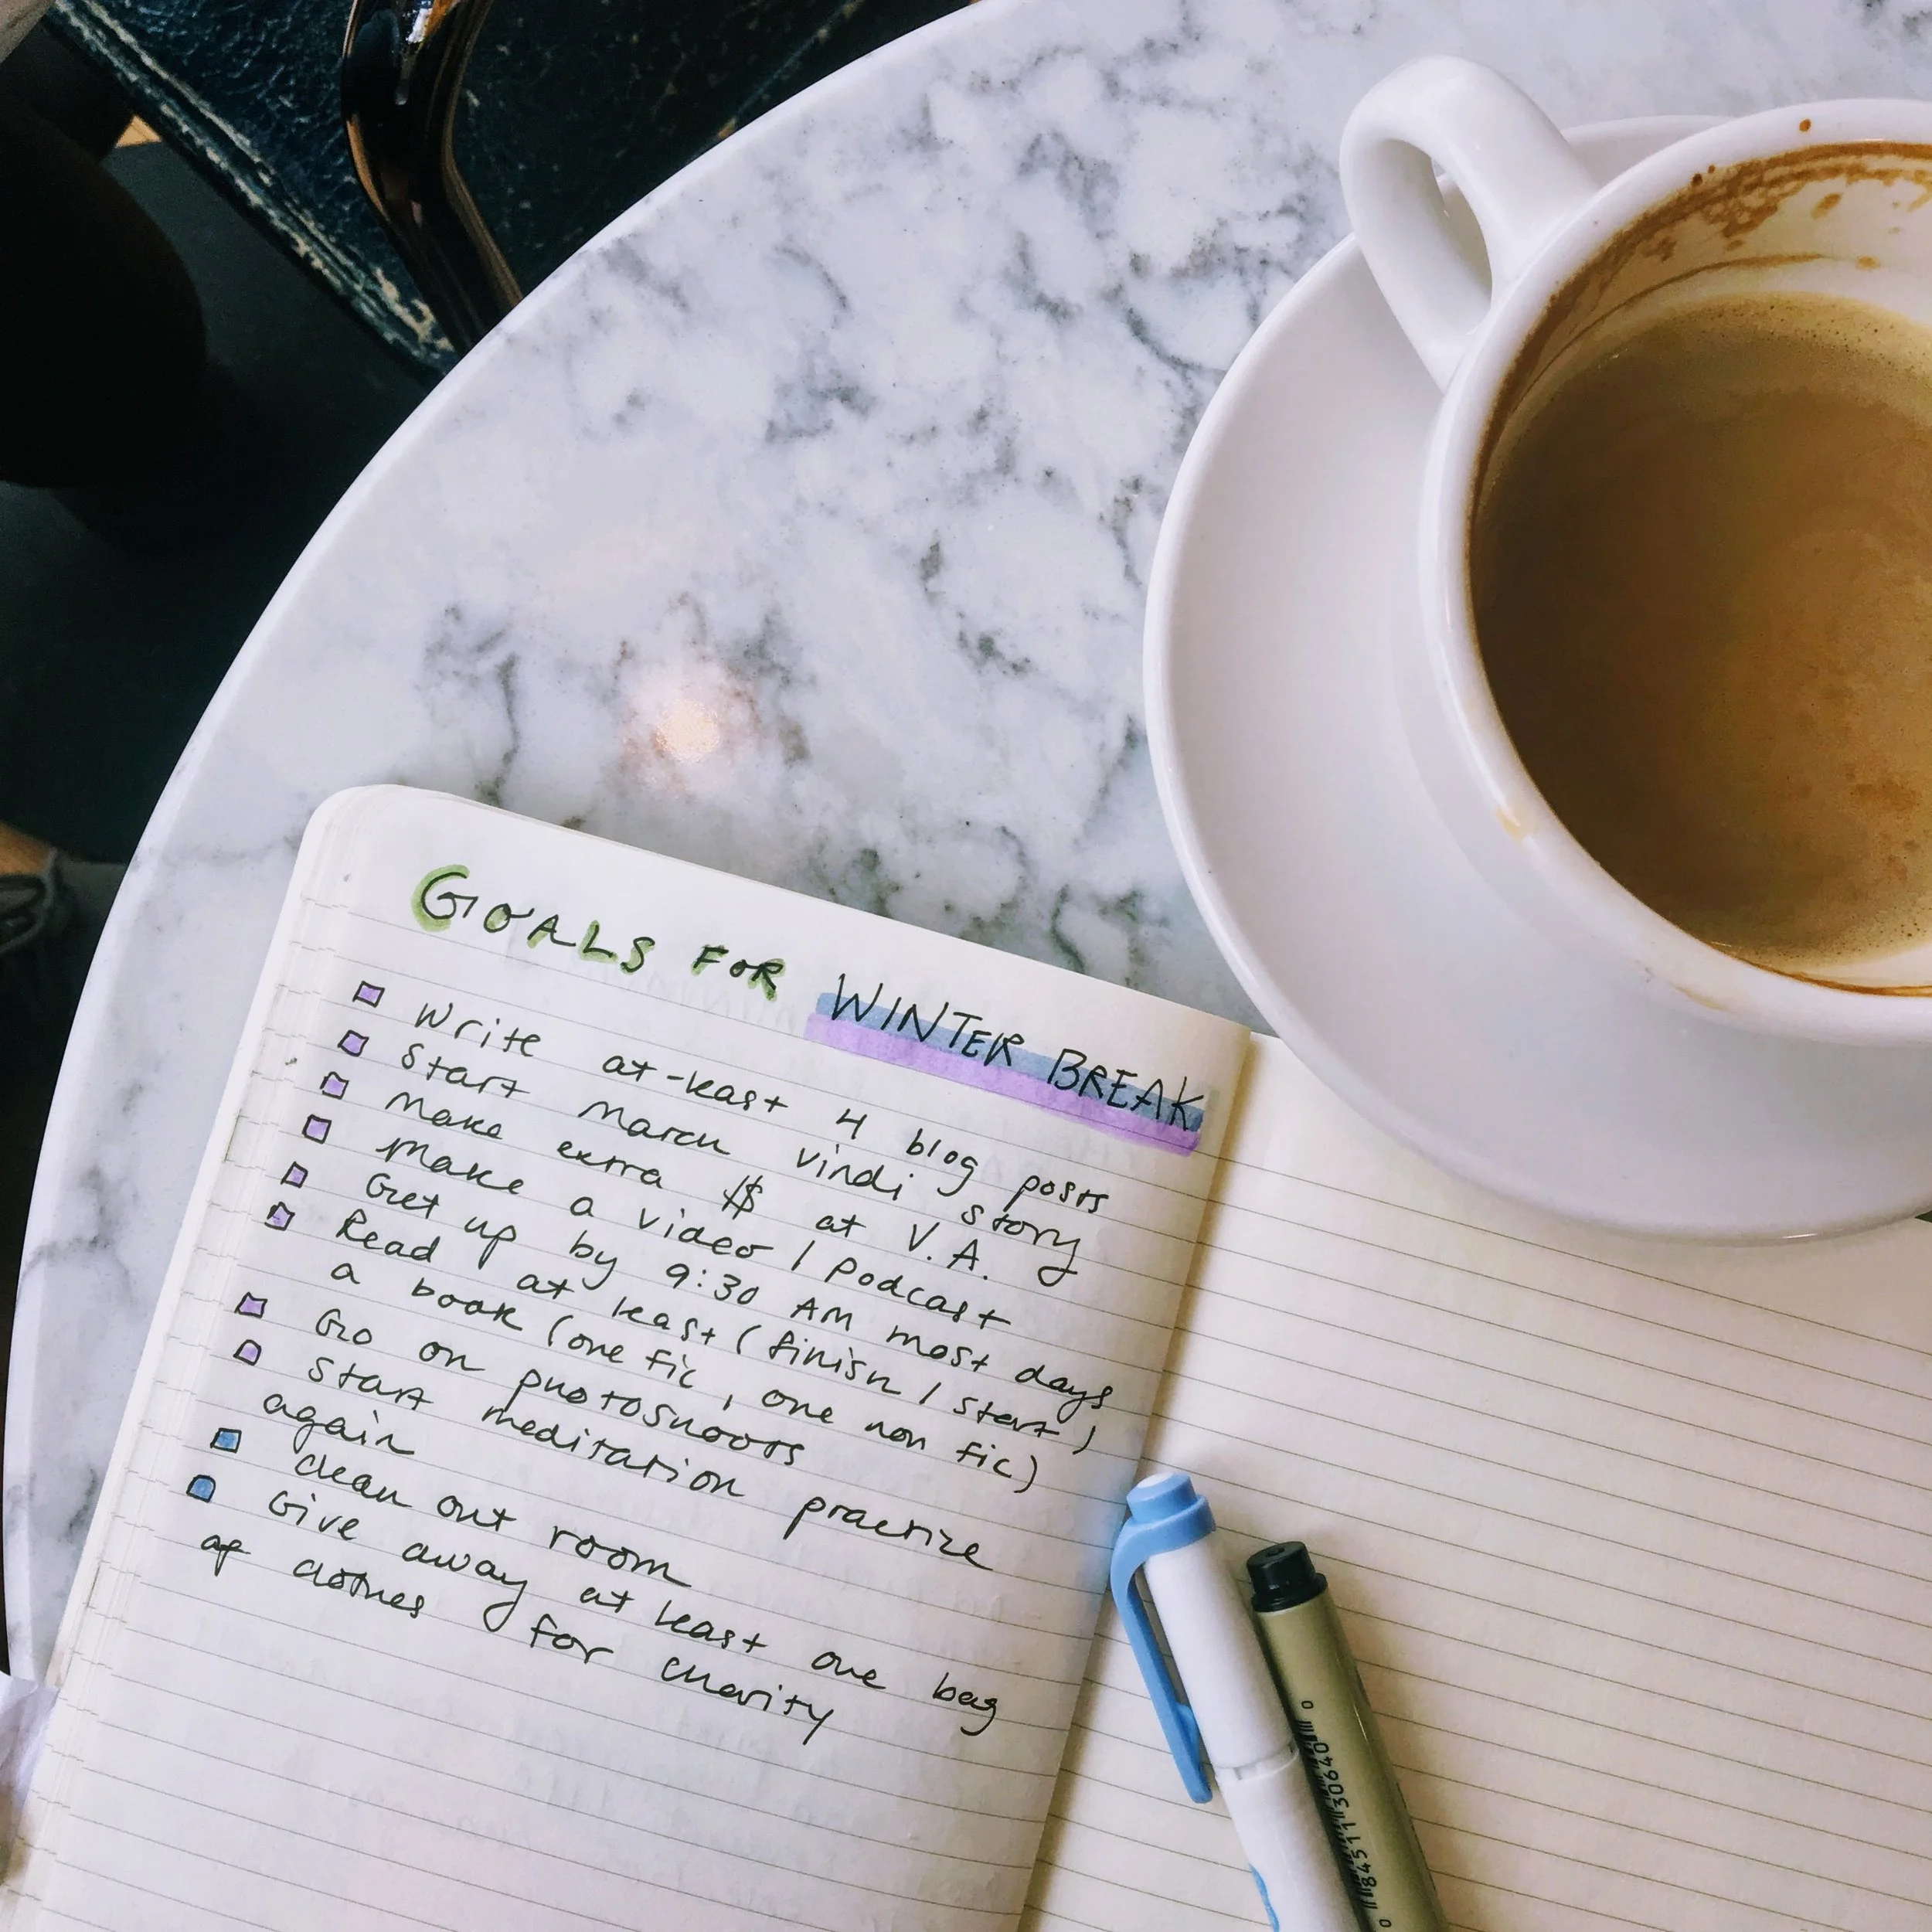 GOALS FOR WINTER BREAK
Write at-least 4 blog posts
Start March vindi story
Make extra $ at V.A.
Make a video / podcast
Get up by 9:30 AM most days
Read at least (finish / start)
a book (one fic, one non fic)
Go on photoshoots
Start meditation practice
again
clean out room
Give away at least one bag
of clothes for charity
84511 30640 0